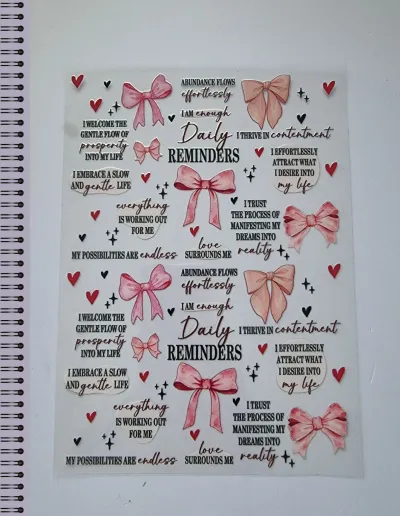 ABUNDANCE FLOWS
effortlessly
I AM enough
I WELCOME THE
GENTLE FLOW OF
prosperity
INTO MY LIFE
Daily
REMINDERS
I THRIVE IN contentment
I EFFORTLESSLY
ATTRACT WHAT
I DESIRE INTO
my life
I EMBRACE A SLOW
AND gentle LIFE
everything
IS WORKING OUT
FOR ME
I TRUST
THE PROCESS OF
MANIFESTING MY
DREAMS INTO
reality
MY POSSIBILITIES ARE endless
love
SURROUNDS ME
ABUNDANCE FLOWS
effortlessly
I AM enough
I WELCOME THE
GENTLE FLOW OF
prosperity
INTO MY LIFE
Daily
REMINDERS
I THRIVE IN contentment
I EFFORTLESSLY
ATTRACT WHAT
I DESIRE INTO
my life
I EMBRACE A SLOW
AND gentle LIFE
everything
IS WORKING OUT
FOR ME
I TRUST
THE PROCESS OF
MANIFESTING MY
DREAMS INTO
reality
MY POSSIBILITIES ARE endless
love
SURROUNDS ME